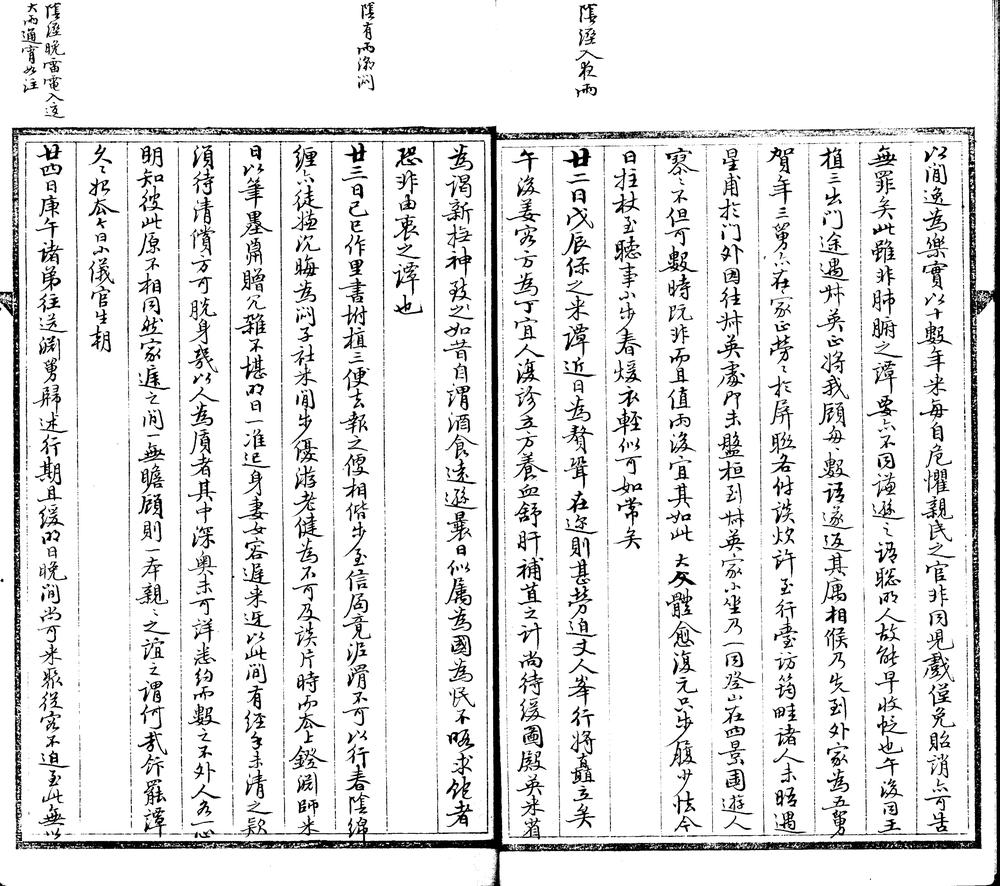 陰溼入夜雨
以閒逸為樂實以十數年來每自危懼親民之官非同兒戲僅免貽誚亦可告
無罪矣此雖非肺腑之譚要亦不同謙遜之語聰明人故能早收帆也午後同王
植三出門途遇妹英正將我顧每數語遂返其屬相候乃先到外家為五舅
賀年三舅亦在家正勞勞於屏聯各件談次許至行臺訪筠畦諸人未晤遇
星甫於門外因往妹英處即未盤桓到妹英家小坐乃一同登山在四景園遊人
寥寥不但可數時既非而且值雨後宜其如此 大父體愈復元只步履少怯今
日拄杖至聽事小步春煖衣輕似可如常矣
廿二日戊辰保之來譚近日為贅鞏在迎則甚勞迫文人筆行將矗立矣
午後姜容方為丁宜人復診立方養血舒肝補直之計尚待緩圖殿英來省
陰有雨漸悶
為謁新撫神致如昔自謂酒食遠遜曩日似屬為國為民不晤求飽者
恐非由衷之譚也
廿三日己巳作里書坿植三便去報之便相偕步至信局竟泥滑不可以行春陰綿
纏亦徒搔沉晦為悶子社來閒步優游老健為不可及談片時而去上鐙淵師來
日以筆墨屬贈冗雜不堪明日一准還身妻女容遲來迓以此間有經手未清之款
須待清償方可脫身幾以人為質者其中深奧未可詳悉約而數之不外人各一心
明知彼此原不相同然家庭之間一無瞻顧則一本親親之誼之謂何哉飰罷譚
久久始去今日小儀官生朝
陰溼晚雷電入夜
大雨通宵如注
廿四日庚午諸弟往送淵舅歸述行期且緩明日晚間尚可來聚從容不迫至此無以